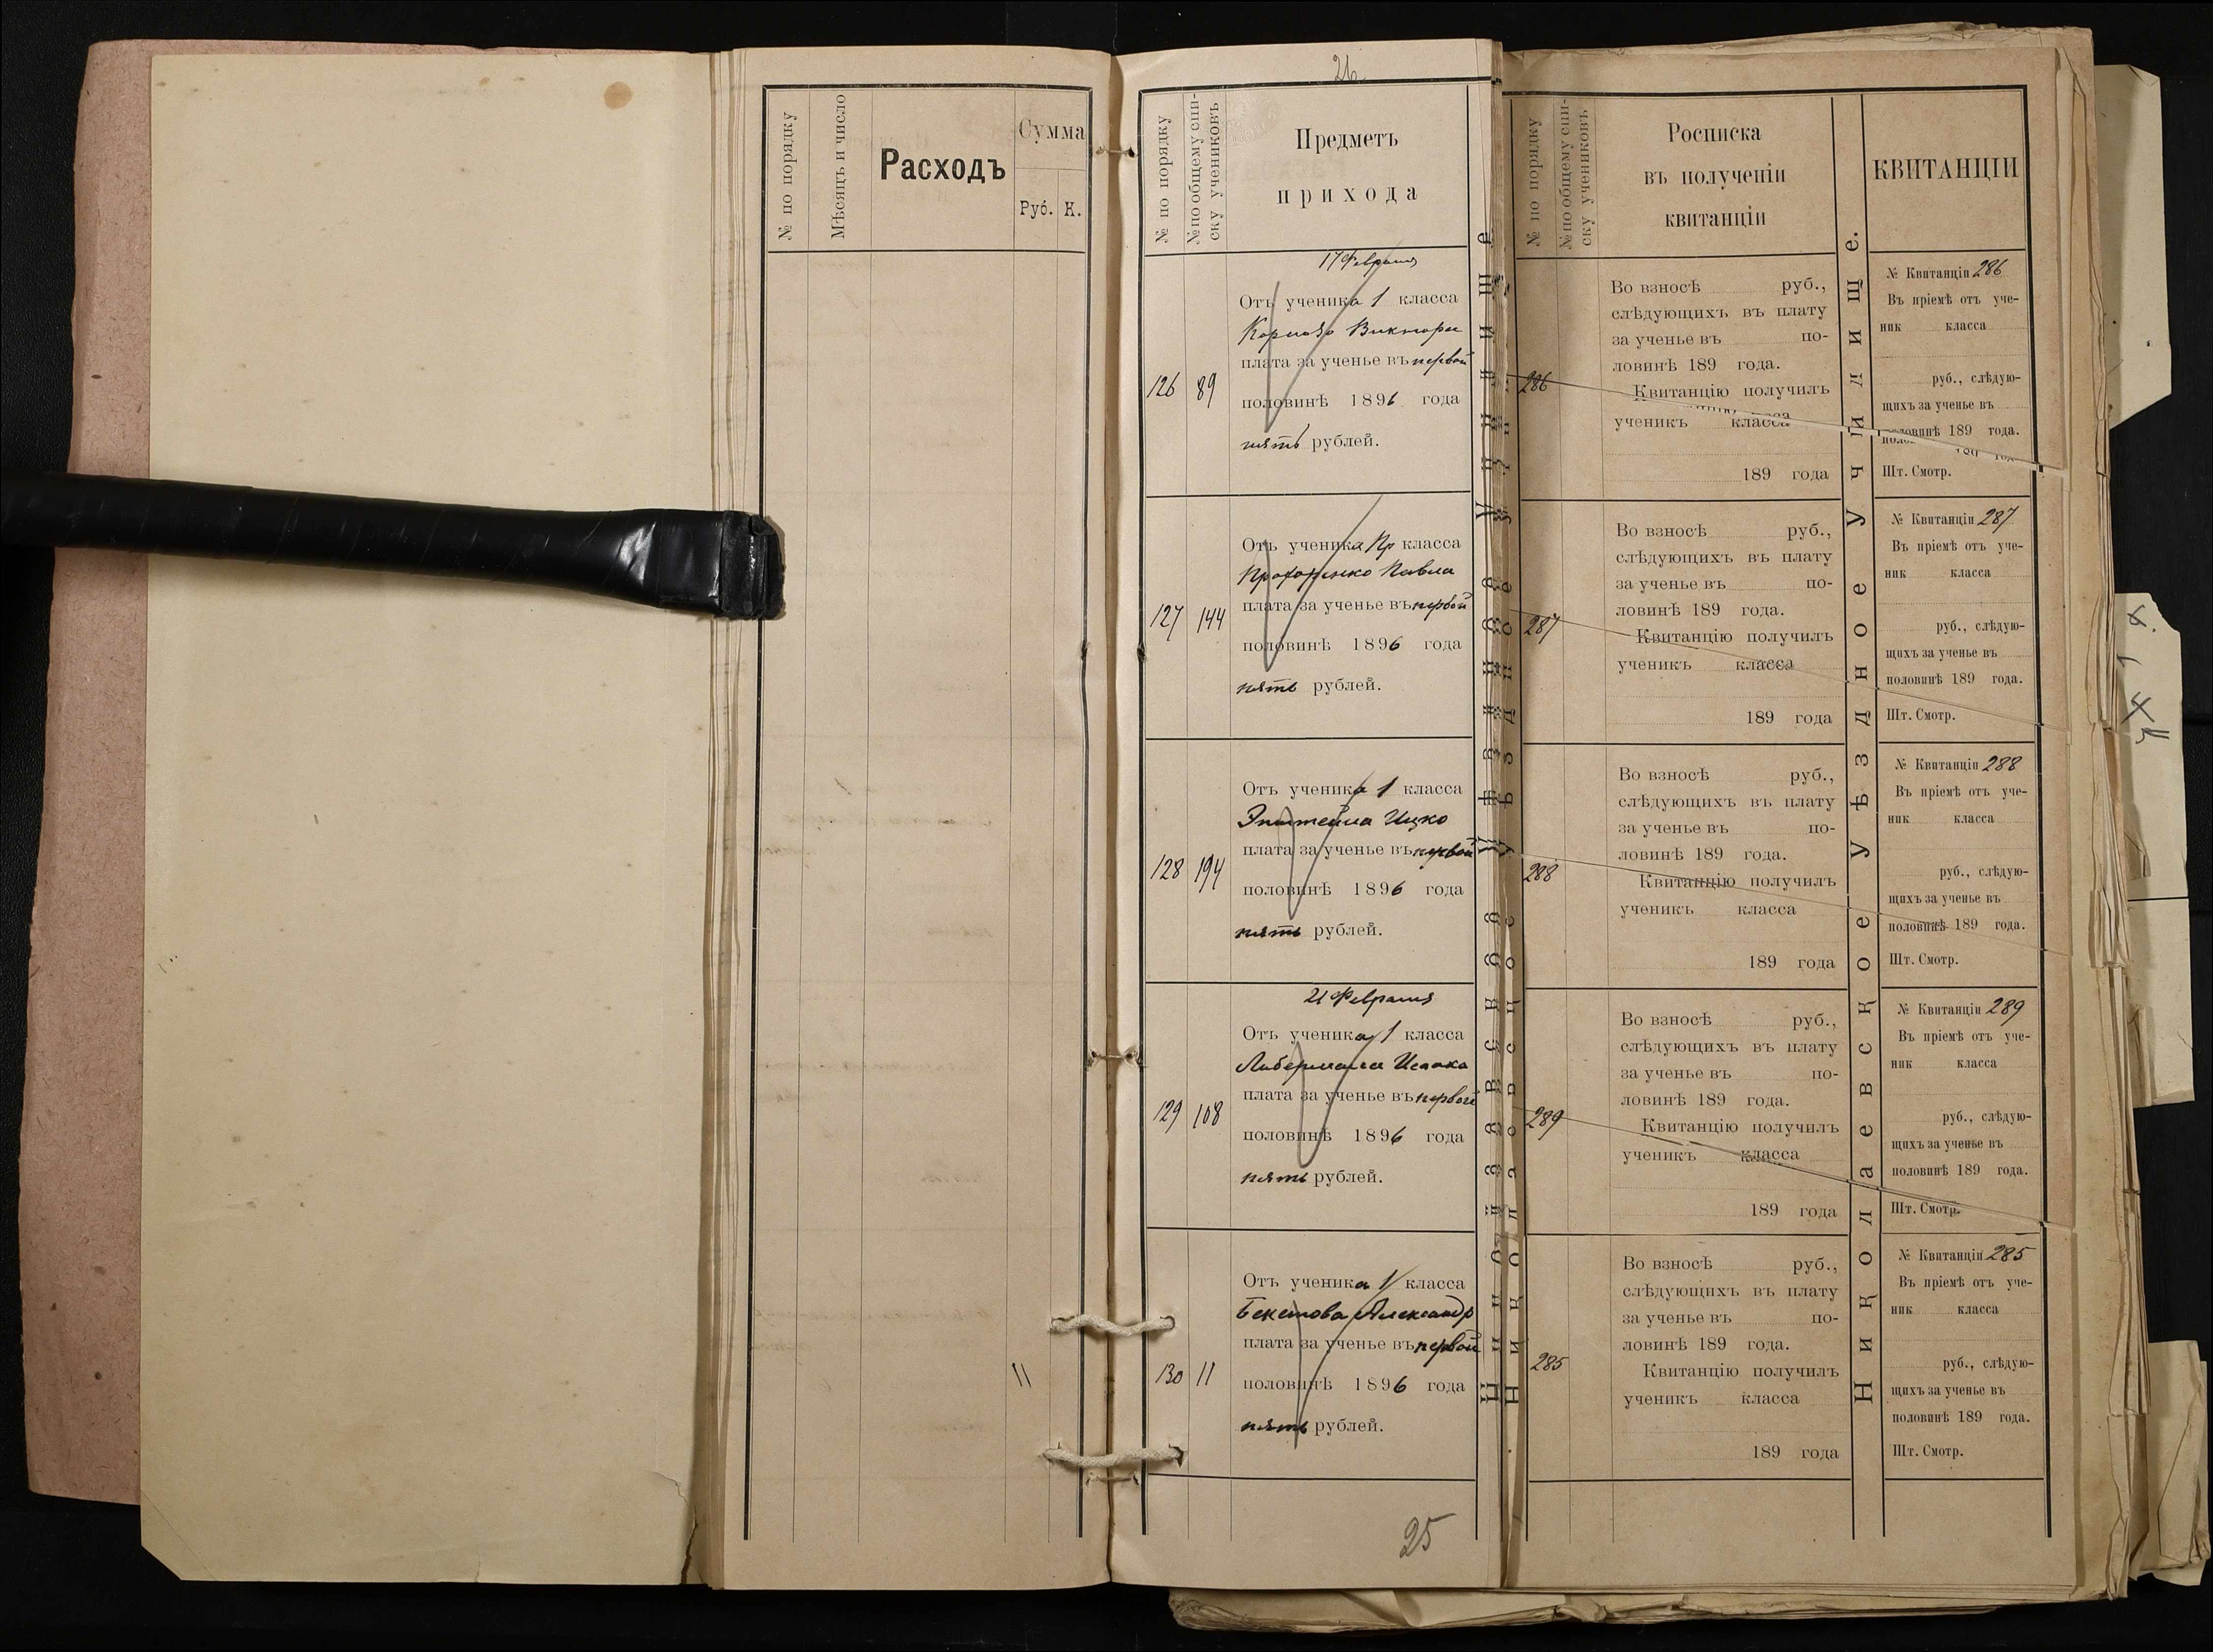 № по порядку
Мѣсяцъ и число
Расходъ
Сумма
Руб. К.
26
№ по порядку
№ по общему спи-
ску учениковъ
Предметъ
прихода
17 Февраля
Отъ ученика 1 класса
Виктора
плата за ученье въ первой
половинѣ 1896 года
пять рублей.
126 89
Отъ ученика Пр класса
Прохоренко Павла
плата за ученье въ первой
половинѣ 1896 года
пять рублей.
127 144
Отъ ученика 1 класса
Эпштейна Ицко
плата за ученье въ первой
половинѣ 1896 года
пять рублей.
128 194
21 Февраля
Отъ ученика 1 класса
Либермана Исаака
плата за ученье въ первой
половинѣ 1896 года
пять рублей.
129 108
Отъ ученика 1 класса
Бекетова Александр
плата за ученье въ первой
половинѣ 1896 года
пять рублей.
130 11
25
№ по порядку
№ по общему спи-
ску учениковъ
Росписка
въ полученіи
квитанціи
286
Во взносѣ руб.,
слѣдующихъ въ плату
за ученье въ по-
ловинѣ 189 года.
Квитанцію получилъ
ученикъ класса
189 года
287
Во взносѣ руб.,
слѣдующихъ въ плату
за ученье въ по-
ловинѣ 189 года.
Квитанцію получилъ
ученикъ класса
189 года
288
Во взносѣ руб.,
слѣдующихъ въ плату
за ученье въ по-
ловинѣ 189 года.
Квитанцію получилъ
ученикъ класса
189 года
289
Во взносѣ руб.,
слѣдующихъ въ плату
за ученье въ по-
ловинѣ 189 года.
Квитанцію получилъ
ученикъ класса
189 года
285
Во взносѣ руб.,
слѣдующихъ въ плату
за ученье въ по-
ловинѣ 189 года.
Квитанцію получилъ
ученикъ класса
189 года
Николаевское Уѣздное Училище.
КВИТАНЦІИ
№ Квитанціи 286
Въ пріемѣ отъ уче-
ник класса
руб., слѣдую-
щихъ за ученье въ
половинѣ 189 года.
Шт. Смотр.
№ Квитанціи 287
Въ пріемѣ отъ уче-
ник класса
руб., слѣдую-
щихъ за ученье въ
половинѣ 189 года.
Шт. Смотр.
№ Квитанціи 288
Въ пріемѣ отъ уче-
ник класса
руб., слѣдую-
щихъ за ученье въ
половинѣ 189 года.
Шт. Смотр.
№ Квитанціи 289
Въ пріемѣ отъ уче-
ник класса
руб., слѣдую-
щихъ за ученье въ
половинѣ 189 года.
Шт. Смотр.
№ Квитанціи 285
Въ пріемѣ отъ уче-
ник класса
руб., слѣдую-
щихъ за ученье въ
половинѣ 189 года.
Шт. Смотр.